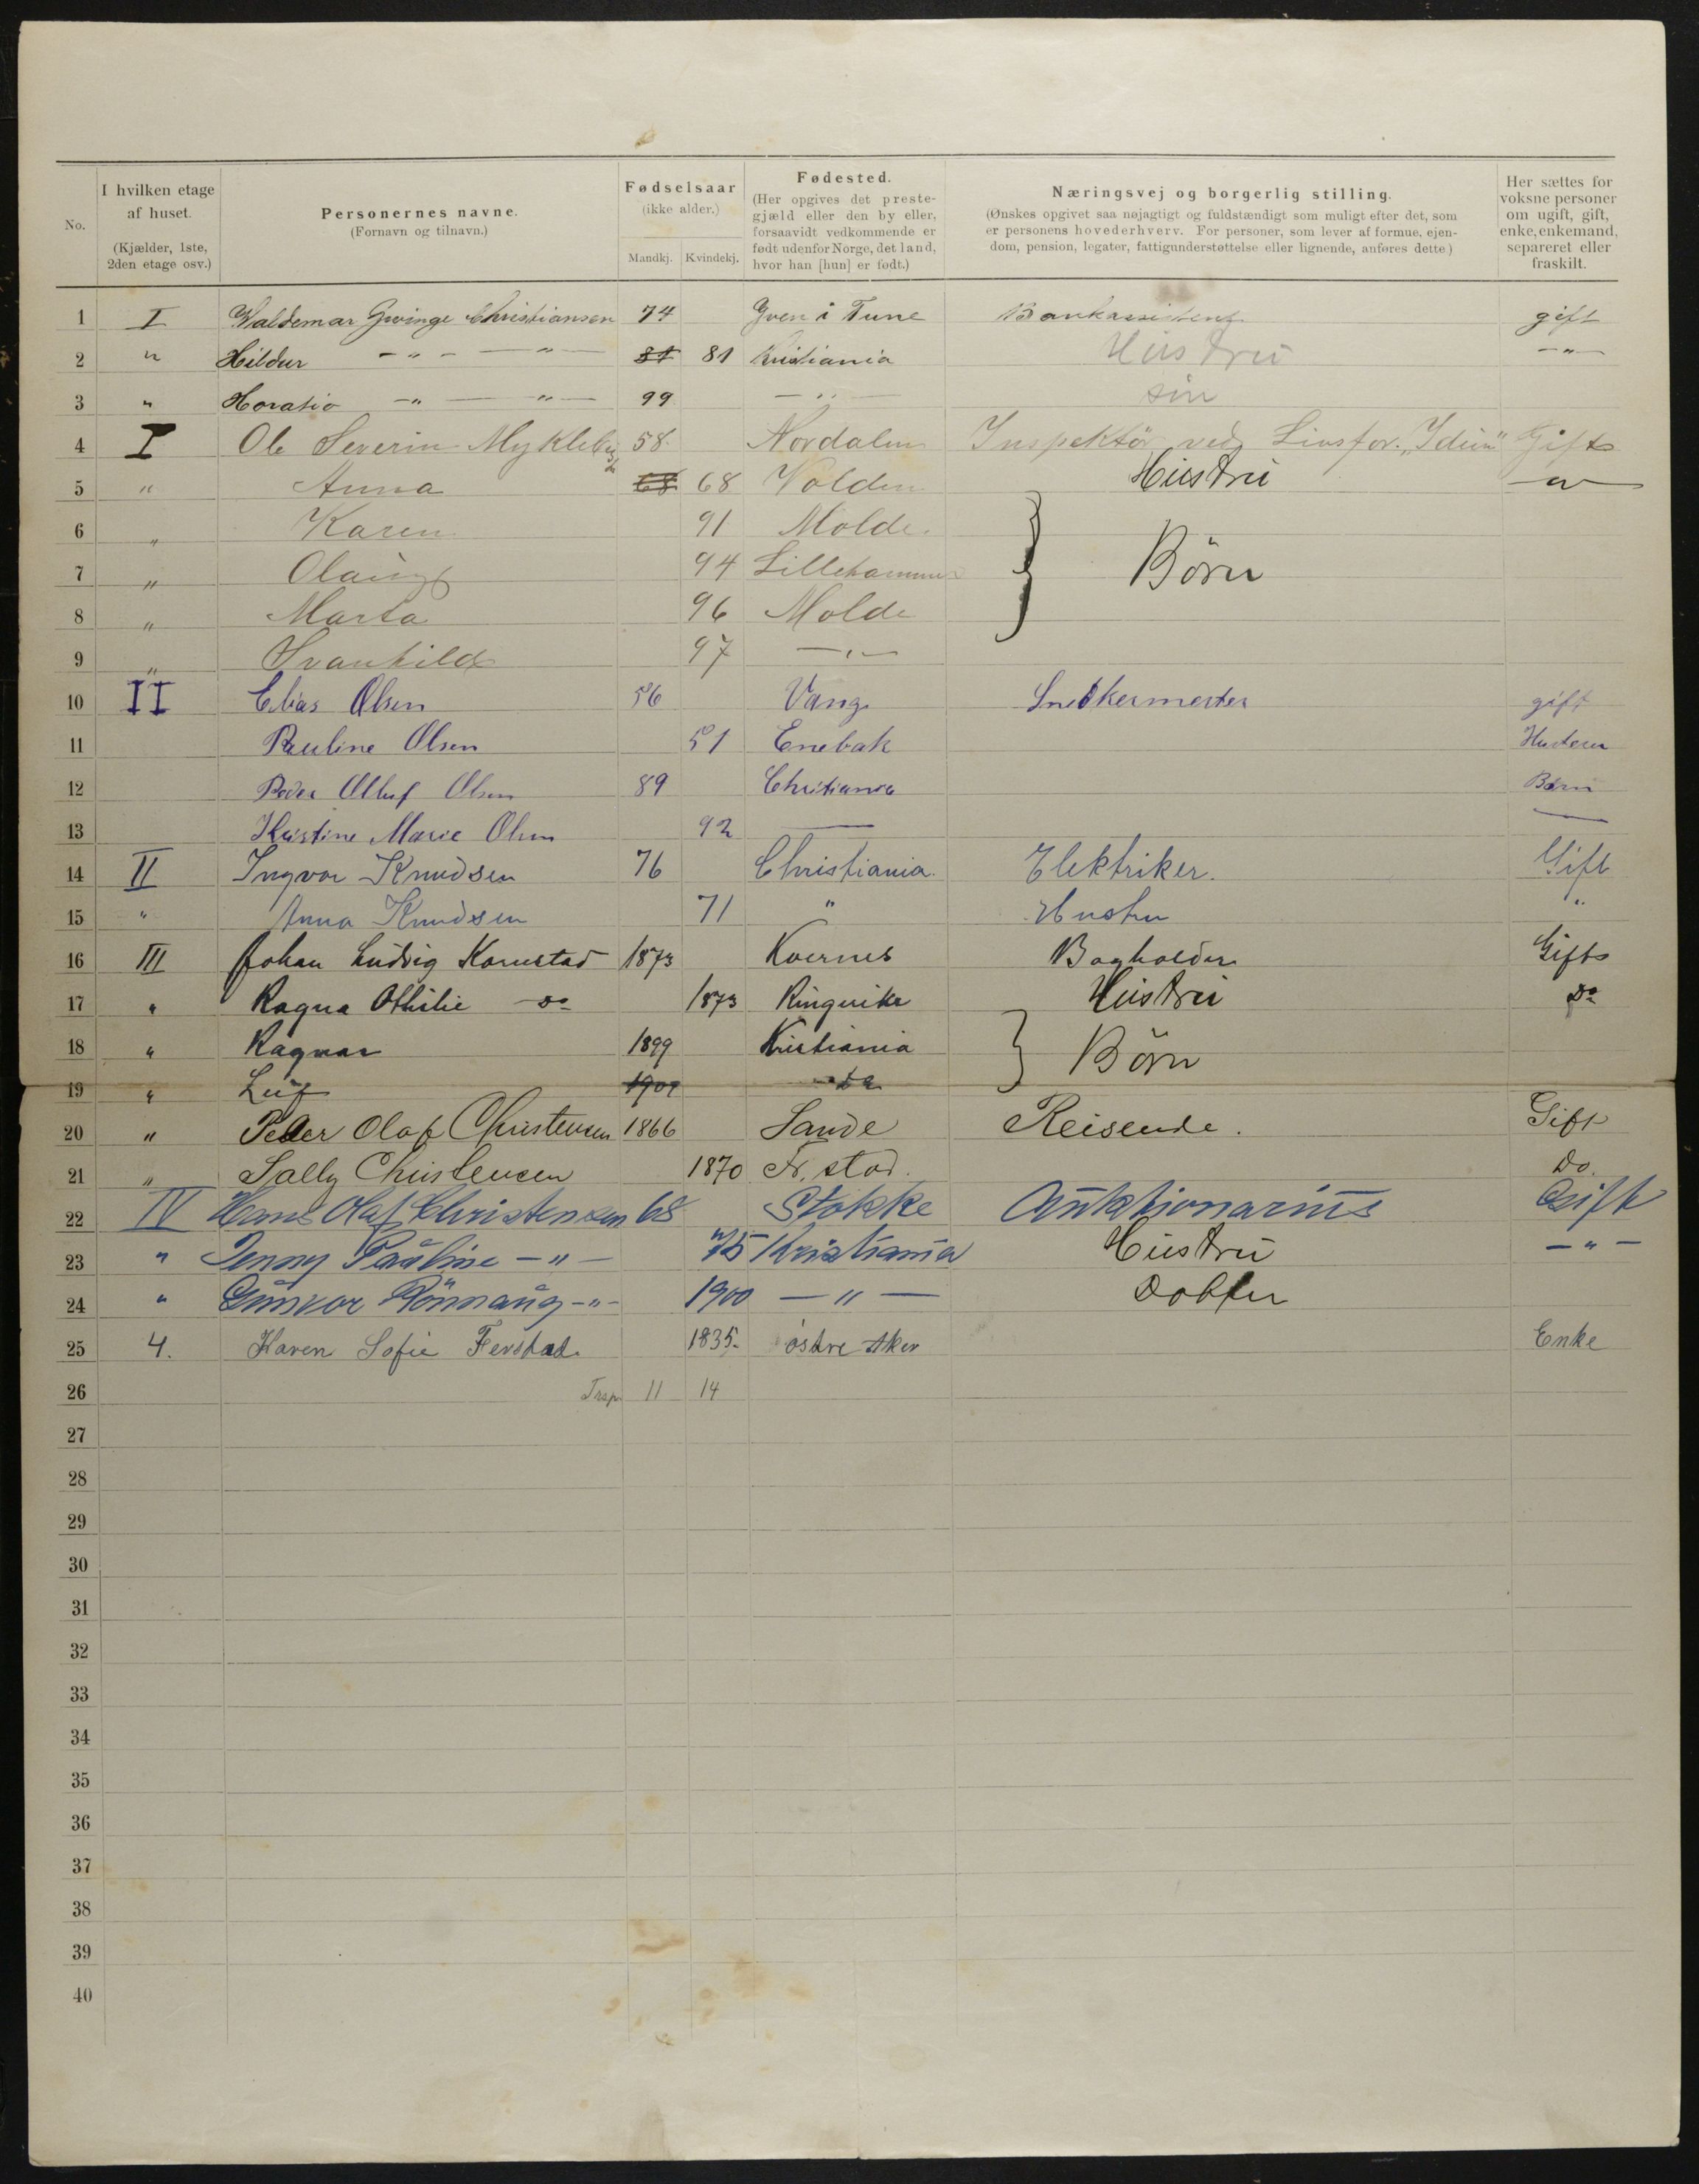 No.
I hvilken etage af huset. (Kjælder, 1ste, 2den etage osv.)
Personernes navne. (Fornavn og tilnavn.)
Fødselsaar (ikke alder.) Mandkj. Kvindekj.
Fødested. (Her opgives det prestegjæld eller den by eller, forsaavidt vedkommende er født udenfor Norge, det land, hvor han [hun] er født.)
Næringsvej og borgerlig stilling. (Ønskes opgivet saa nøjagtigt og fuldstændigt som muligt efter det, som er personens hovederhverv. For personer, som lever af formue, ejendom, pension, legater, fattigunderstøttelse eller lignende, anføres dette.)
Her sættes for voksne personer om ugift, gift, enke, enkemand, separeret eller fraskilt.
1 I Waldemar Gvinge Christiansen 74 Gven i Tune Bankassistent gift
2 " Hildur -"- -"- 81 81 Kristiania Hustru -"-
3 " Horatio -"- -"- 99 -"- sön
4 I Ole Severin Myklebust 58 Nordalen Inspektör ved Livsfor. "Idun" Gift
5 " Anna 68 68 Volden Hustru -"-
6 " Karen 91 Molde
7 " Olaug 94 Lillehammer Börn
8 " Marta 96 Molde
9 " Svanhild 97 -"-
10 II Elias Olsen 56 Vang Snedkermester gift
11 Pauline Olsen 51 Enebak Hustru
12 Peder Olluf Olsen 89 Christiania Børn
13 Kristine Marie Olsen 92 —
14 II Ingvar Knudsen 76 Christiania. Elektriker. Gift
15 " Anna Knudsen 71 " Hustru "
16 III Johan Ludvig Kornstad 1873 Kvernes Bogholder Gift
17 " Ragna Othilie do 1873 Ringerike Hustru do
18 " Ragnar 1899 Kristiania Börn
19 " Leif 1900 do
20 " Peder Olaf Christensen 1866 Sande Reisende. Gift
21 " Sally Christensen 1870 Fr.stad. Do.
22 IV Hans Olaf Christensen 68 Stokke Auktionarius Gift
23 " Jenny Pauline -"- 75 Kristiania Hustru -"-
24 " Gunvor Rönnaug -"- 1900 -"- Dotter
25 4. Karen Sofie Ferstad 1835. östre Aker Enke
26 Trsp. 11 14
27
28
29
30
31
32
33
34
35
36
37
38
39
40